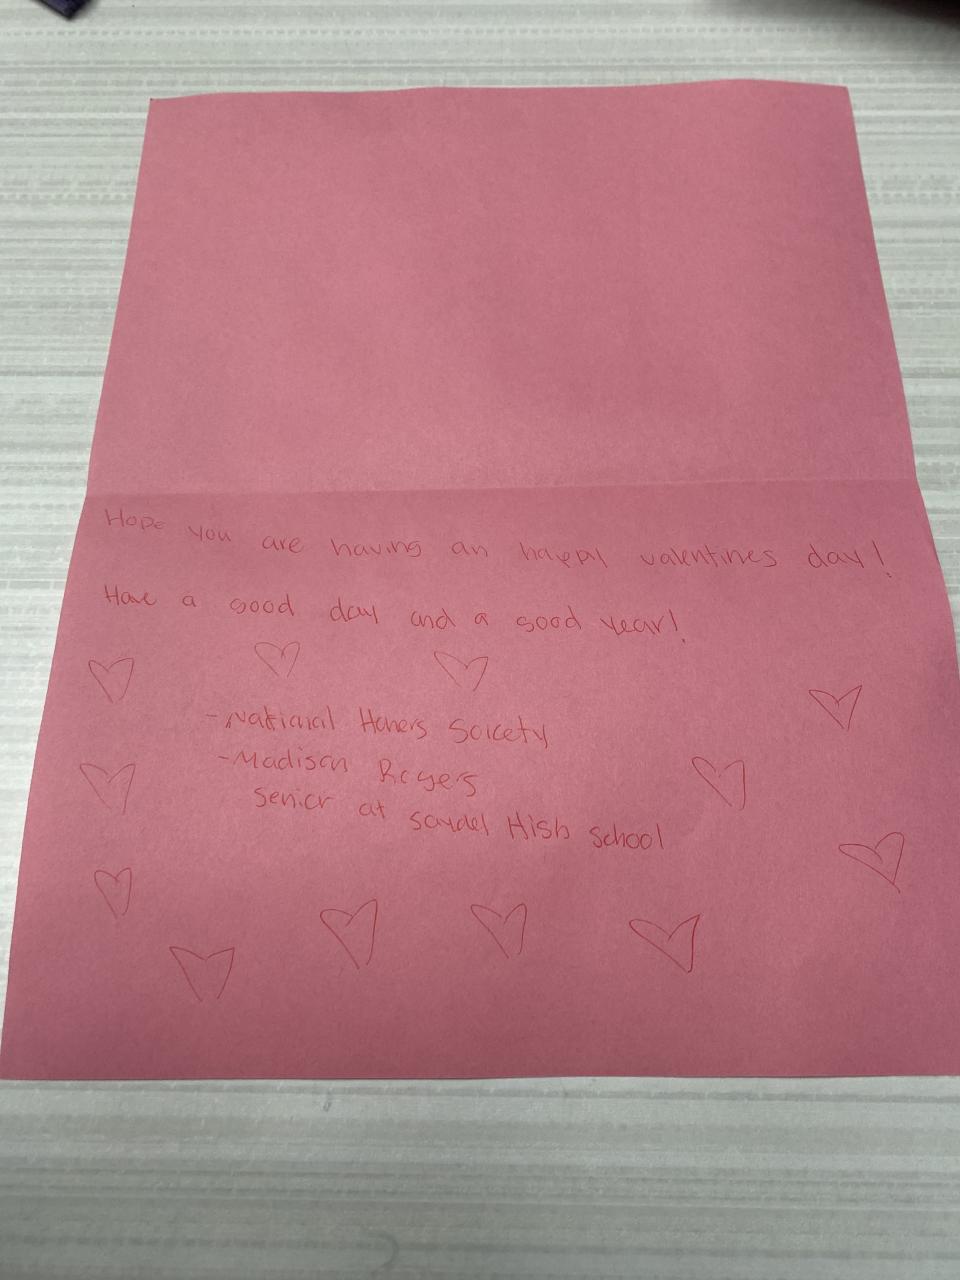 Hope you are having an happy valentines day!
Have a good day and a good year!
-National Honers Soicety
-Madison Rogers
senior at saydel High school